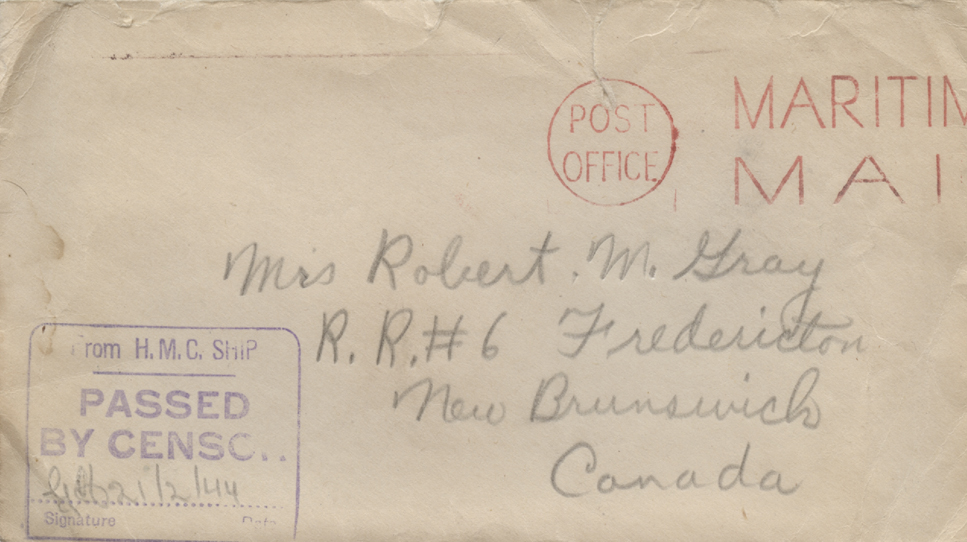 POST
OFFICE
MARITIM
MAI
Mrs Robert. M. Gray
R. R. #6 Fredericton
New Brunswick
Canada
From H. M. C. SHIP
PASSED
BY CENSO..
21/2/44
Signature Date